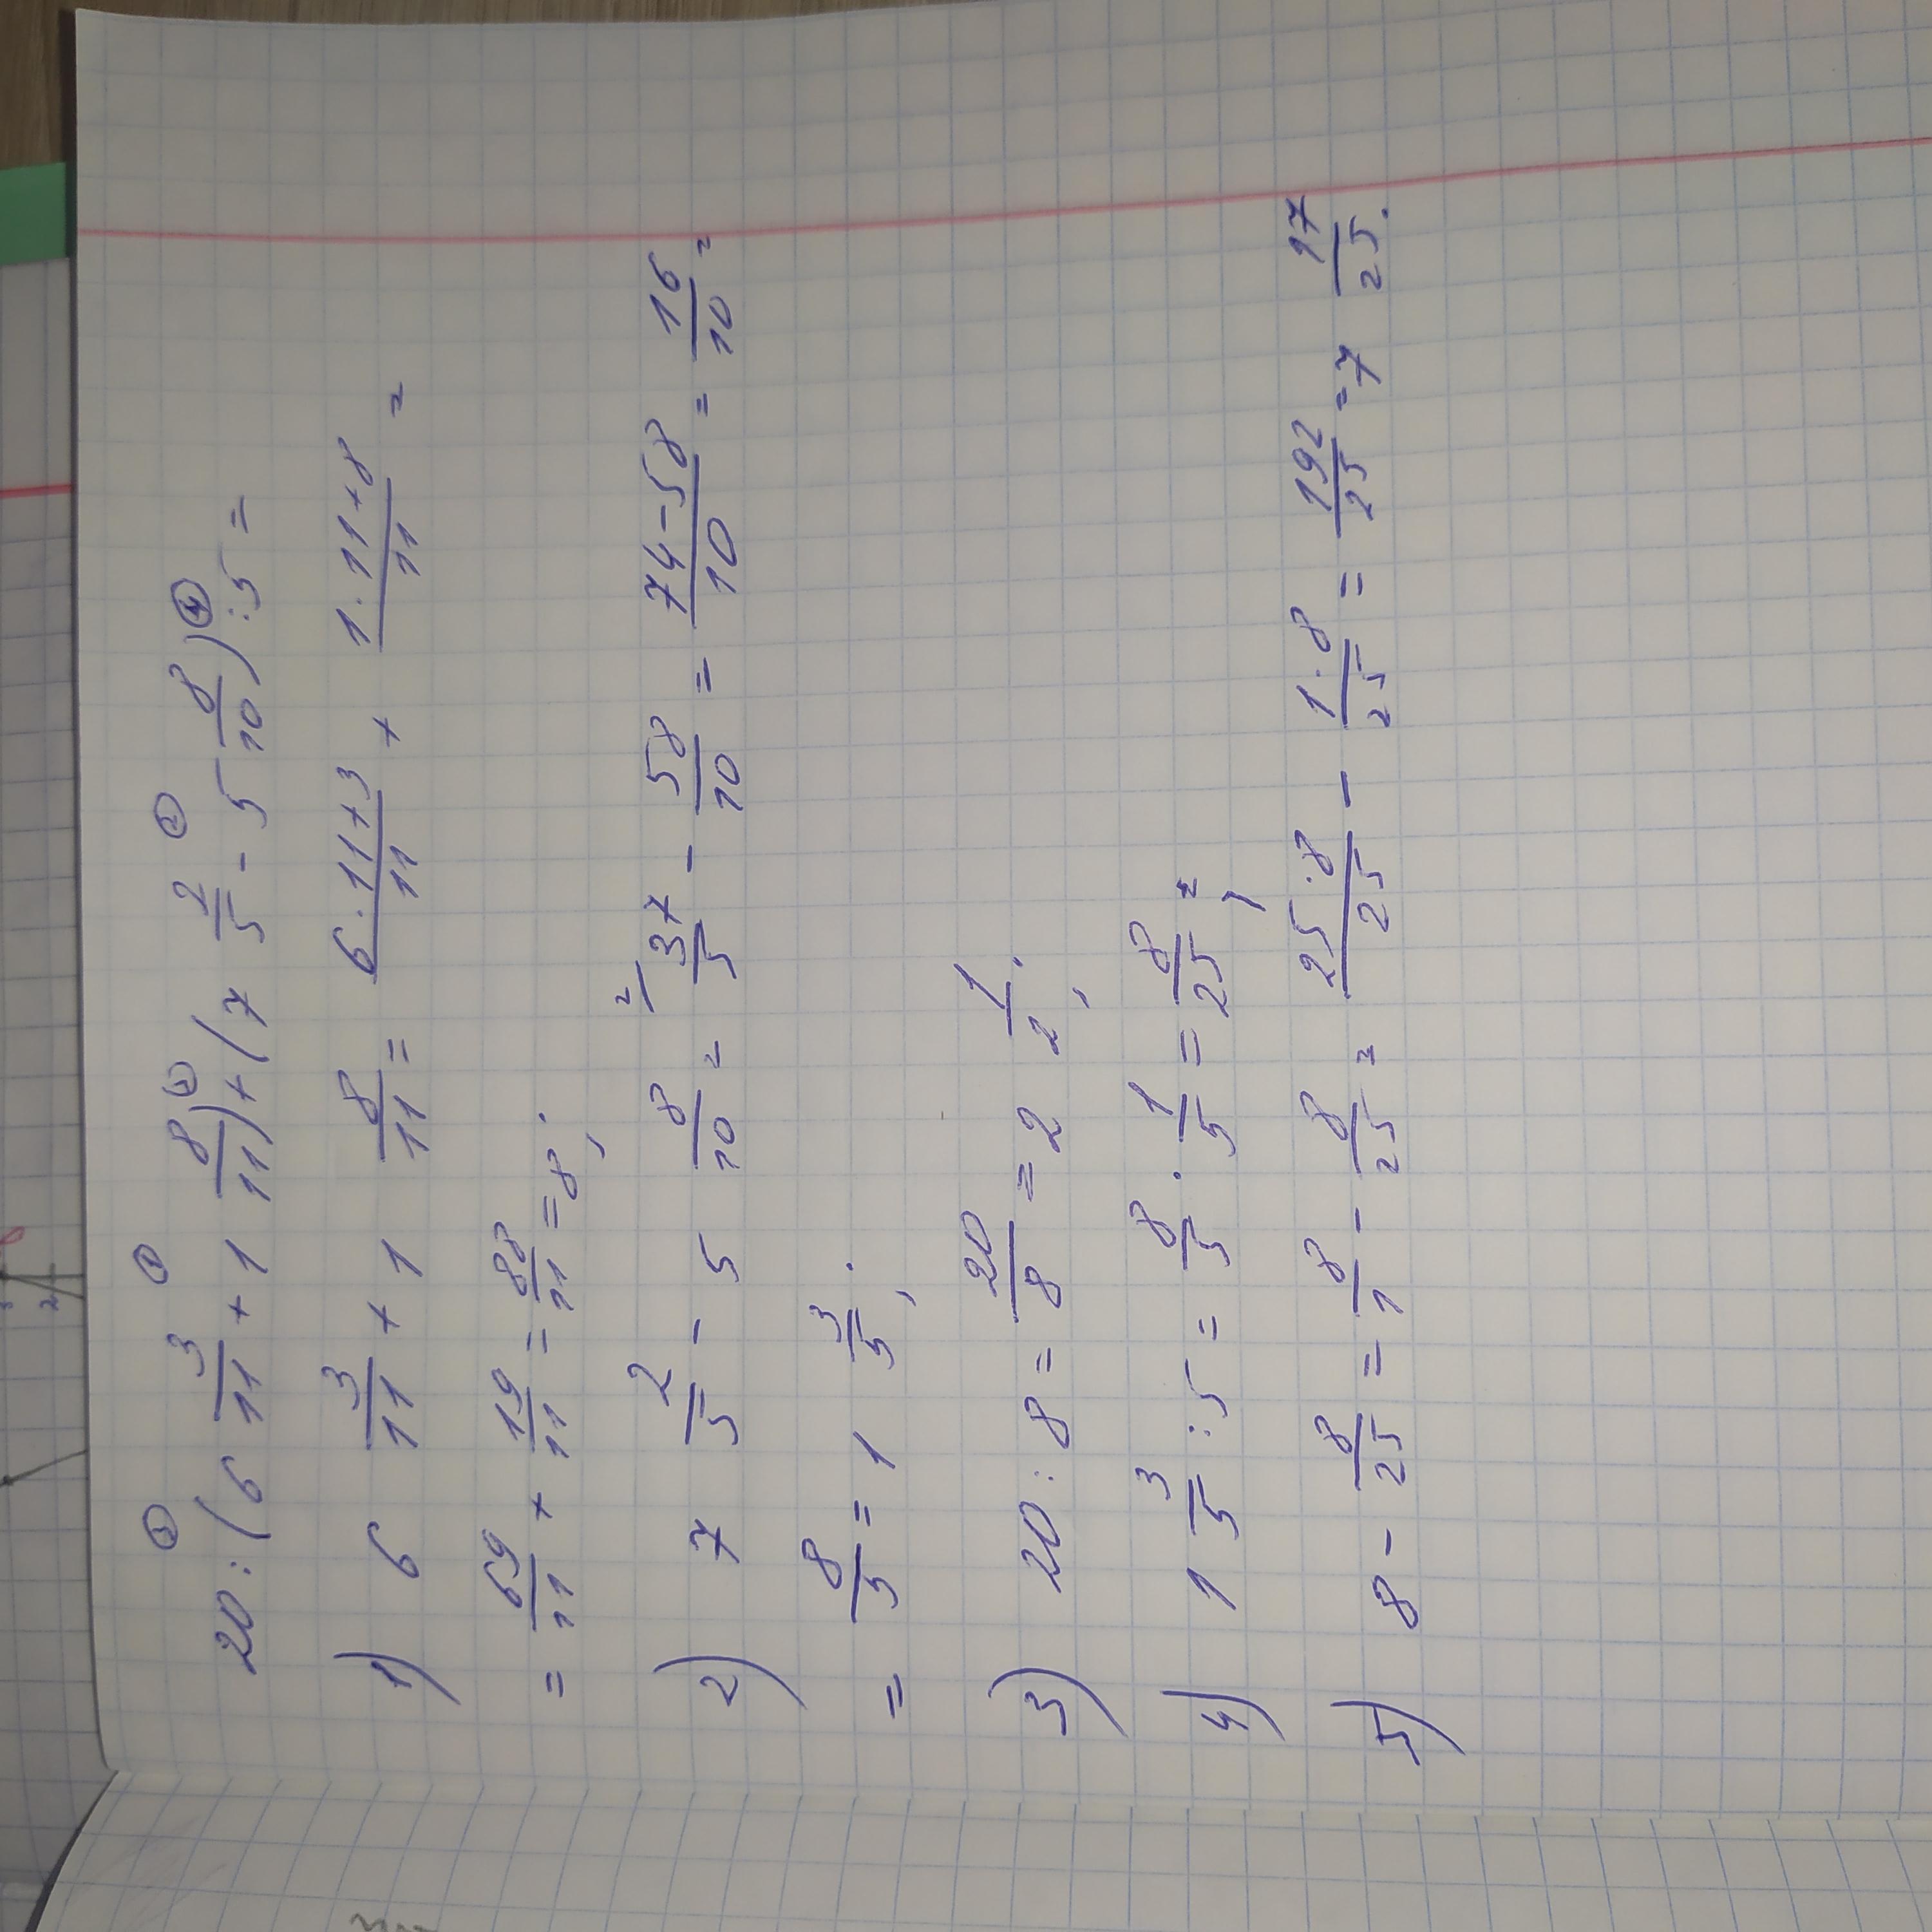 20 : (6 3/11 + 1 8/11) + (7 2/5 - 5 8/10) : 5 =
1) 6 3/11 + 1 8/11 = (6 · 11 + 3)/11 + (1 · 11 + 8)/11 =
= 69/11 + 19/11 = 88/11 = 8;
2) 7 2/5 - 5 8/10 = 37/5 - 58/10 = (74 - 58)/10 = 16/10 =
= 8/5 = 1 3/5;
3) 20 : 8 = 20/8 = 2 1/2;
4) 1 3/5 : 5 = 8/5 · 1/5 = 8/25;
5) 8 - 8/25 = 8/1 - 8/25 = (25 · 8)/25 - (1 · 8)/25 = 192/25 = 7 17/25.